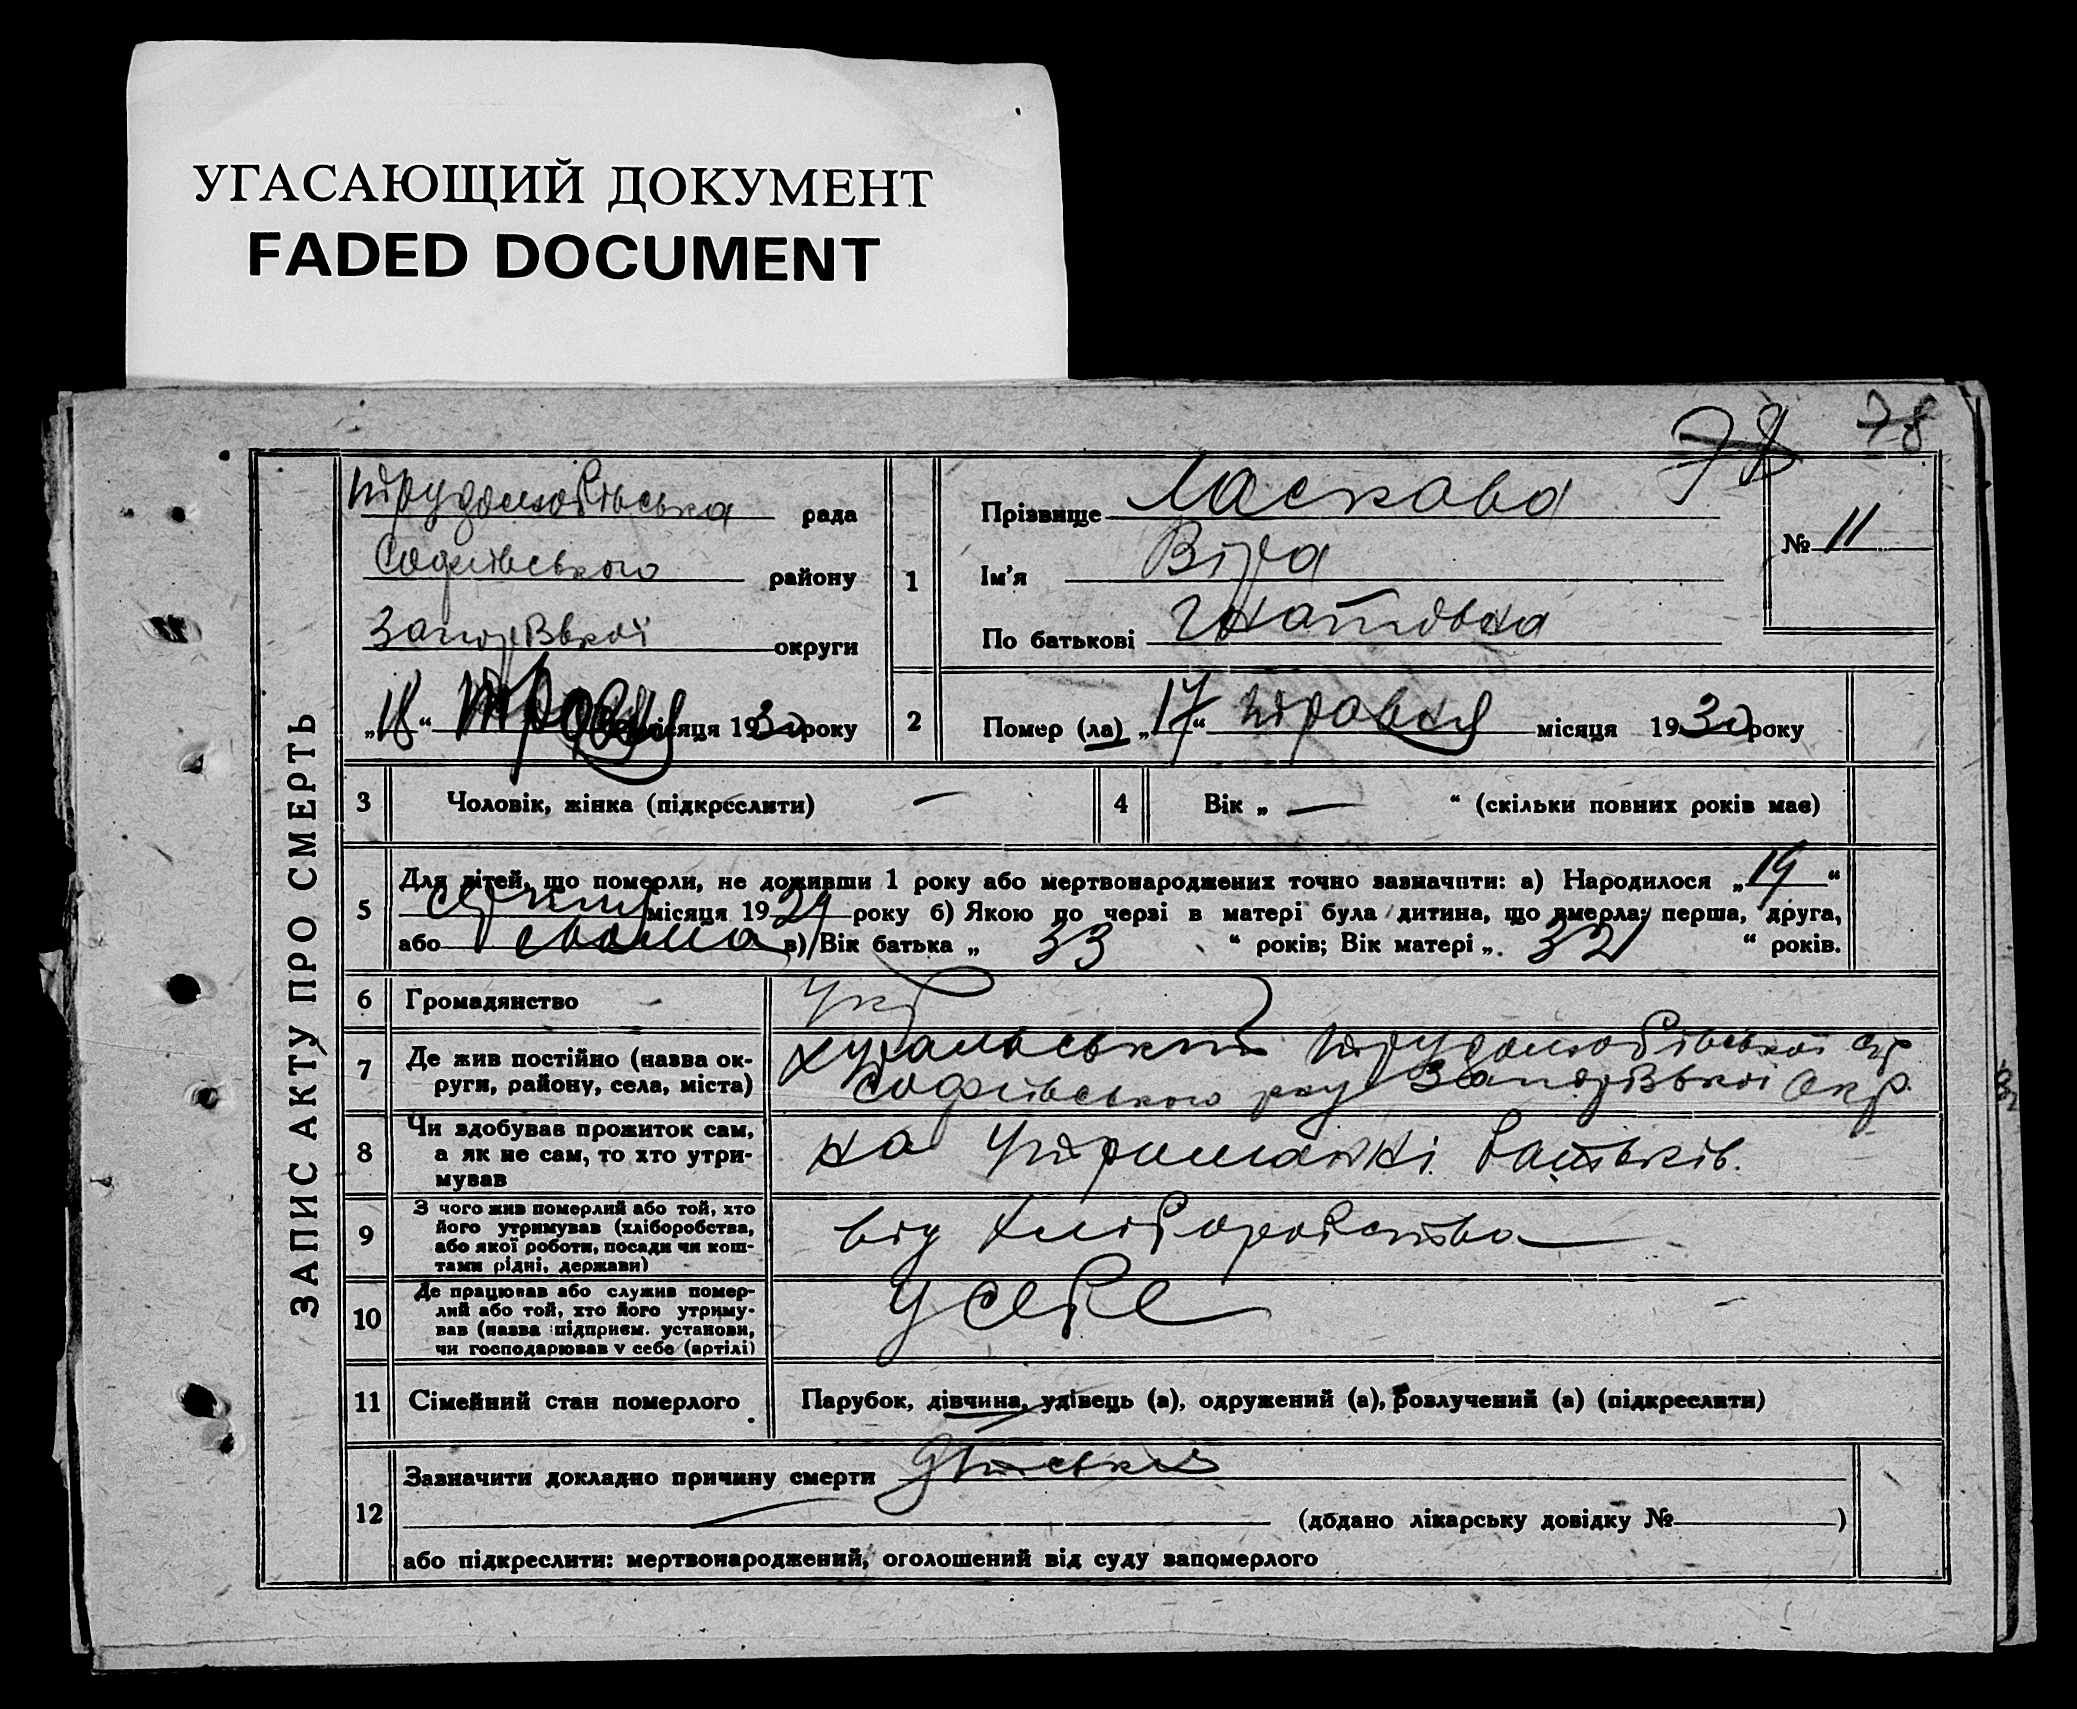 УГАСАЮЩИЙ ДОКУМЕНТ
FADED DOCUMENT
78 78
ЗАПИС АКТУ ПРО СМЕРТЬ
Трудолюбівська рада
Софіївського району
округи
„18“ Травня місяця 1930 року
1
Прізвище Ласкава
Ім'я Віра
По батькові Гнатівна
№ 11
2
Помер (ла) „17“ травня місяця 1930 року
3 Чоловік, жінка (підкреслити) —
4 Вік „ — “ (скільки повних років має)
5 Для дітей, що померли, не доживши 1 року або мертвонароджених точно зазначити: а) Народилося „19“
серпня місяця 1929 року б) Якою по черзі в матері була дитина, що вмерла: перша, друга,
або сьома в) Вік батька „ 33 “ років; Вік матері „ 32 “ років.
6 Громадянство Укр
7 Де жив постійно (назва округи, району, села, міста)
Трудолюбівської с/р
Софіївського р-ну Окр.
8 Чи здобував прожиток сам, а як не сам, то хто утримував
на утриманні батьків.
9 З чого жив померлий або той, хто його утримував (хліборобства, або якої роботи, посади чи коштами рідні, держави)
від хліборобства
10 Де працював або служив померлий або той, хто його утримував (назва підприєм. установи, чи господарював у себе (артілі)
У себе
11 Сімейний стан померлого
Парубок, дівчина, удівець (а), одружений (а), розлучений (а) (підкреслити)
12 Зазначити докладно причину смерти
(додано лікарську довідку № )
або підкреслити: мертвонароджений, оголошений від суду запомерлого